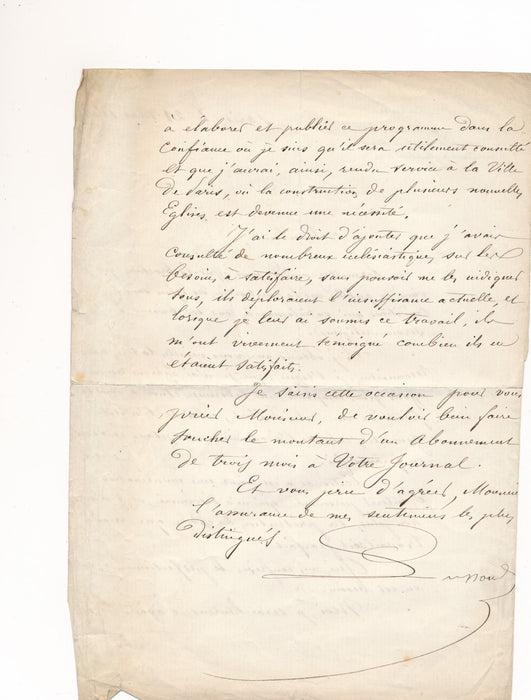 à élaborer et publier ce programme dans la
confiance où je suis qu'il sera utilement consulté
et que j'aurai, ainsi, rendu service à la Ville
de Paris, où la construction de plusieurs nouvelles
Eglises est devenue une nécessité.
J'ai le droit d'ajouter que j'avais
consulté de nombreux ecclésiastiques, sur les
besoins à satisfaire, sans pouvoir me les indiquer
tous, ils déploraient l'insuffisance actuelle, et
lorsque je leur ai soumis ce travail, ils
m'ont vivement témoigné combien ils en
étaient satisfaits.
Je saisis cette occasion pour vous
prier Monsieur, de vouloir bien faire
toucher le montant d'un Abonnement
de trois mois à Votre Journal.
Et vous prie d'agréer, Monsieur
l'assurance de mes sentiments les plus
Distingués